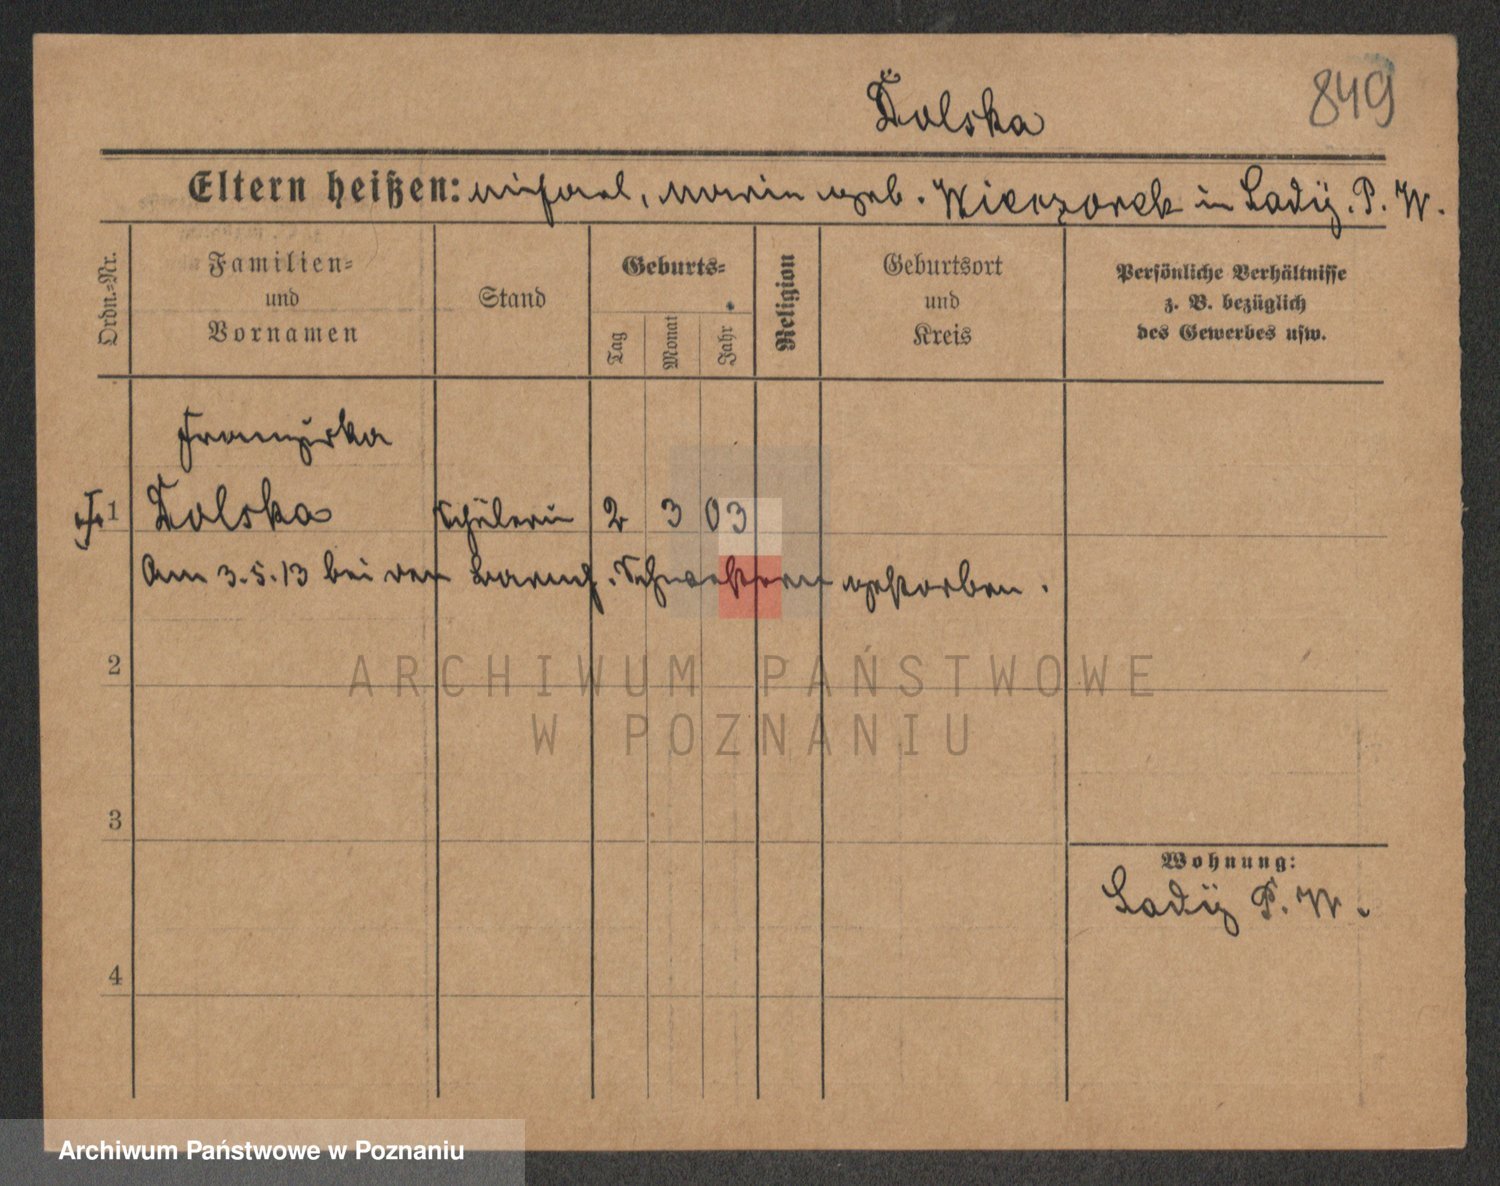 Dolska
849
Eltern heißen: Michael, Marie geb. Wieczorek in Ladzy. P. W.
Ordn.-Nr.
Familien-
und
Vornamen
Stand
Geburts-
Tag
Monat
Jahr
Religion
Geburtsort
und
Kreis
Persönliche Verhältnisse
z. B. bezüglich
des Gewerbes usw.
Franziska
1 Dolska Schülerin 2 3 03
Am 3.5.13 bei den Barmh. Schwestern gestorben.
2
3
4
Wohnung:
P. W.
ARCHIWUM PAŃSTWOWE
W POZNANIU
Archiwum Państwowe w Poznaniu